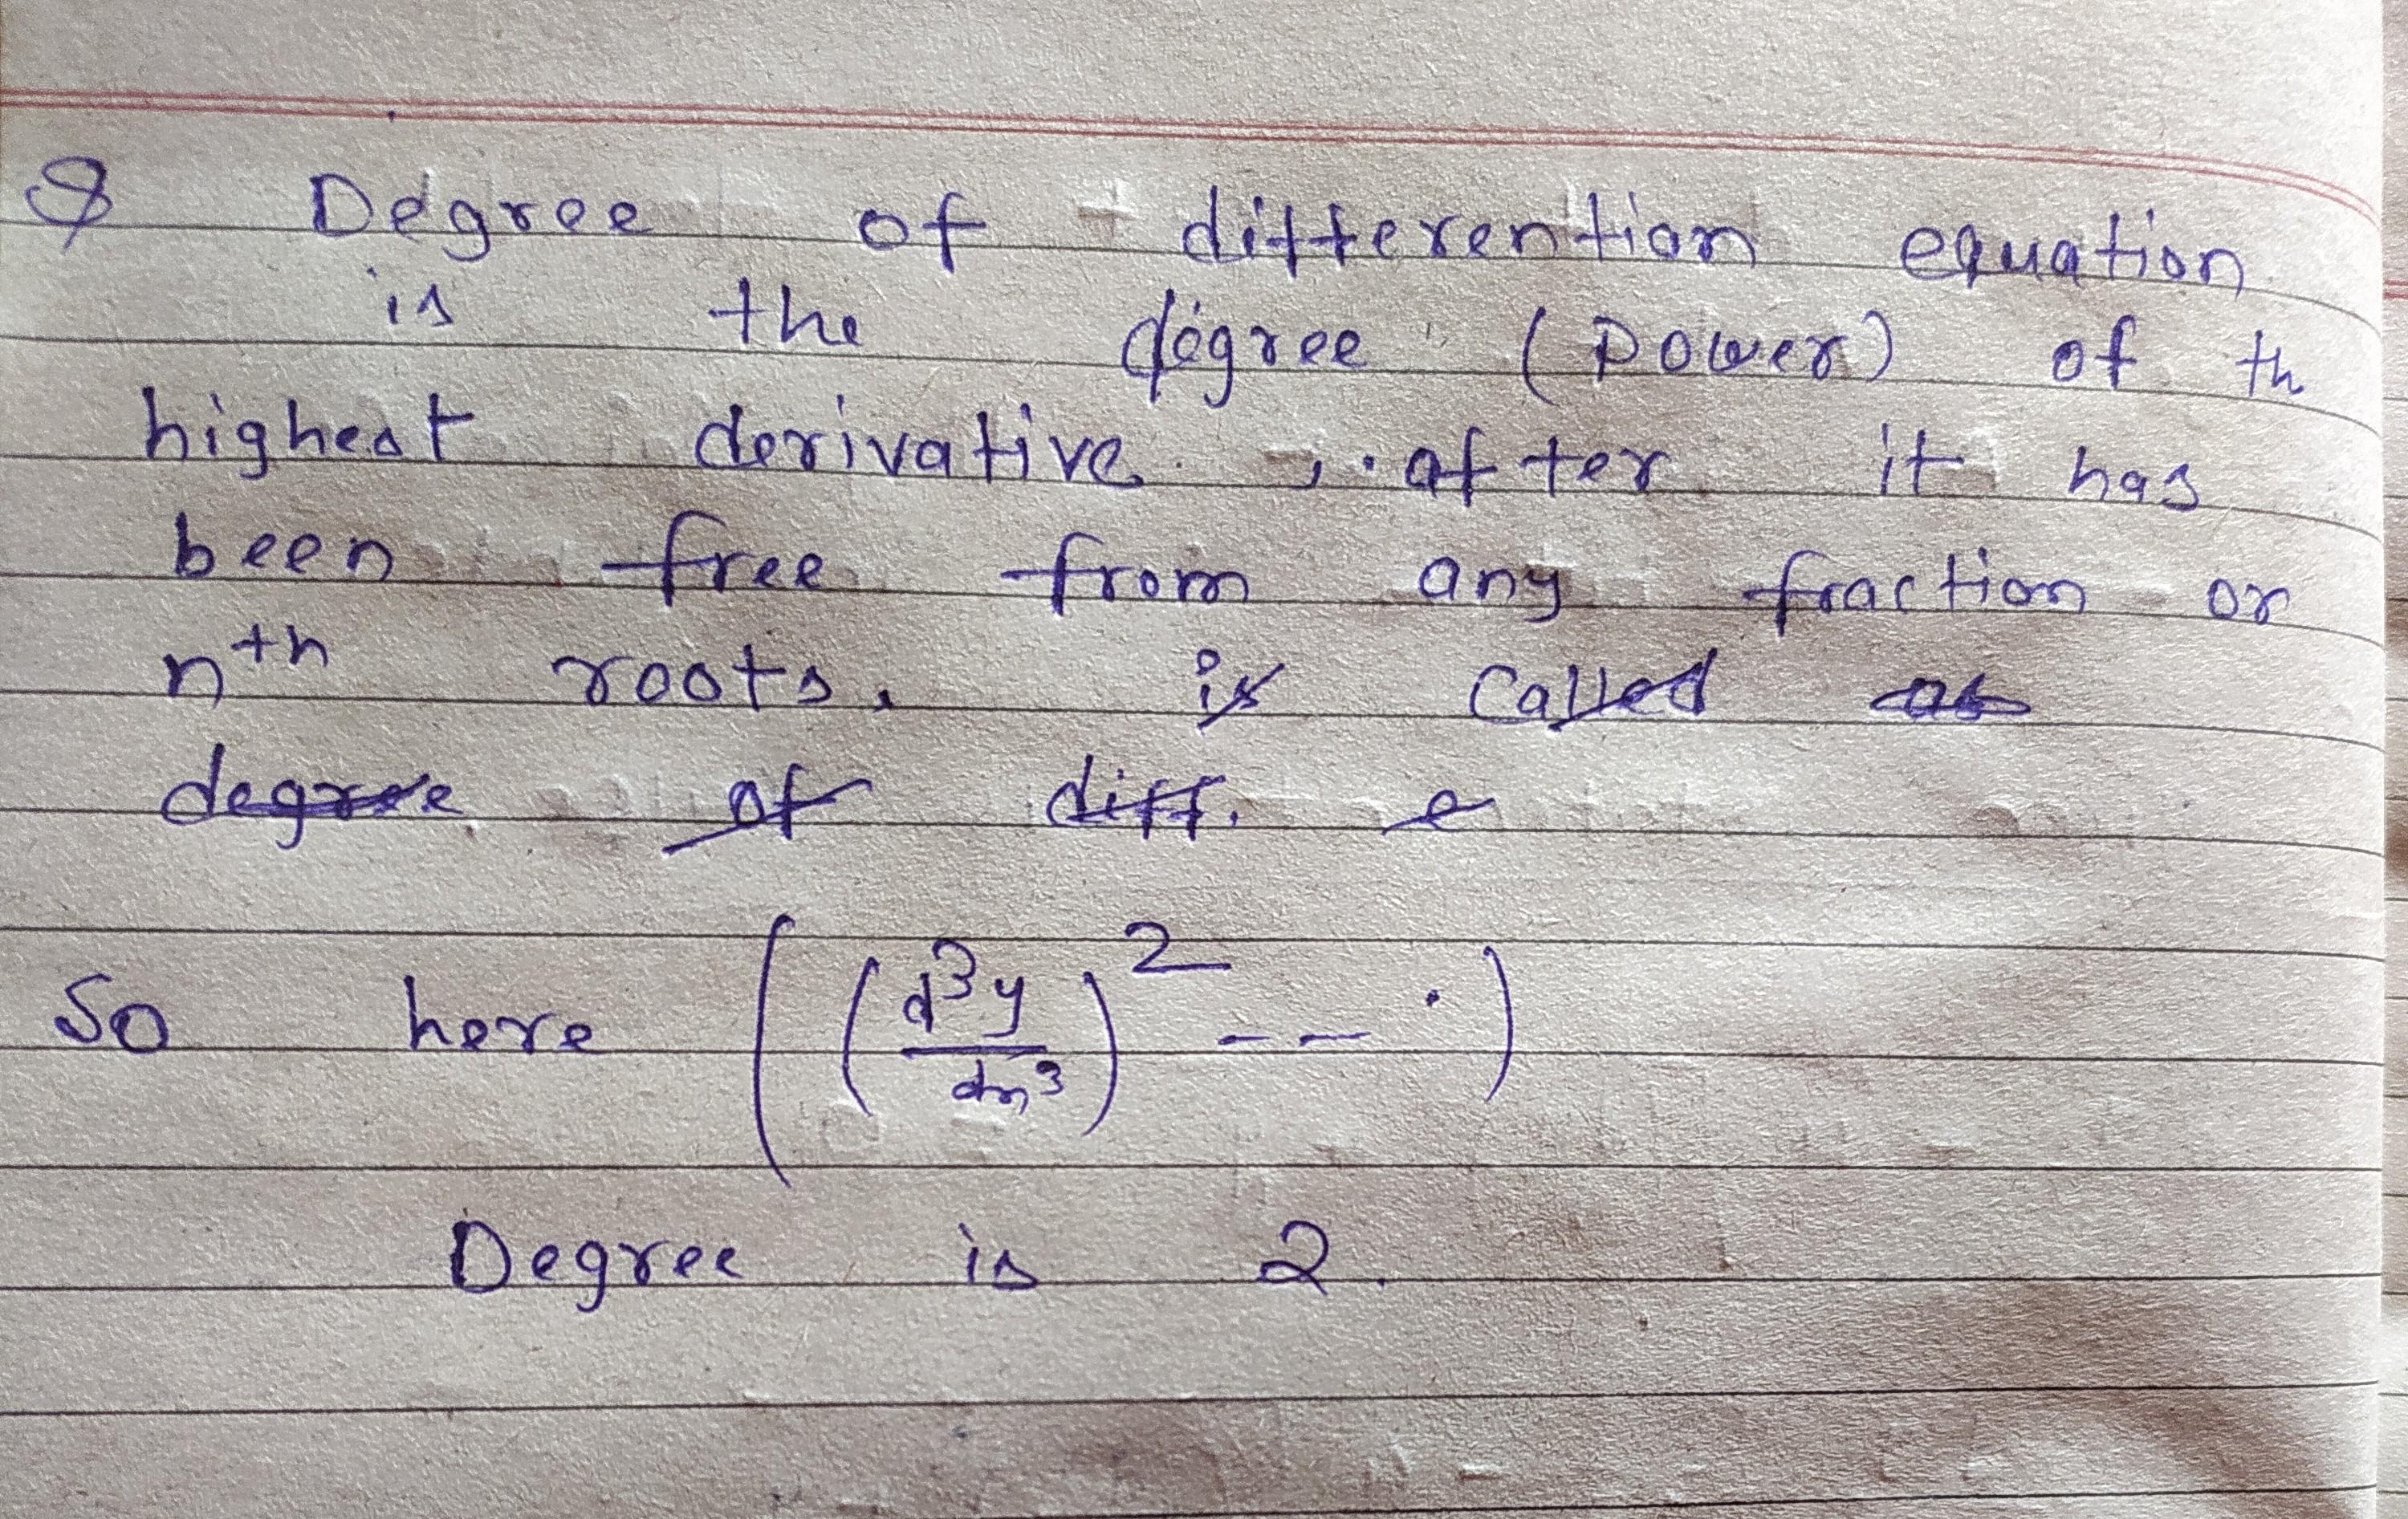 Q Degree of differention equation
is the degree (Power) of th
highest derivative , after it has
been free from any fraction or
nth roots, is called as
degree of diff. e
So here ((d³y/dx³)² -- ·)
Degree is 2.